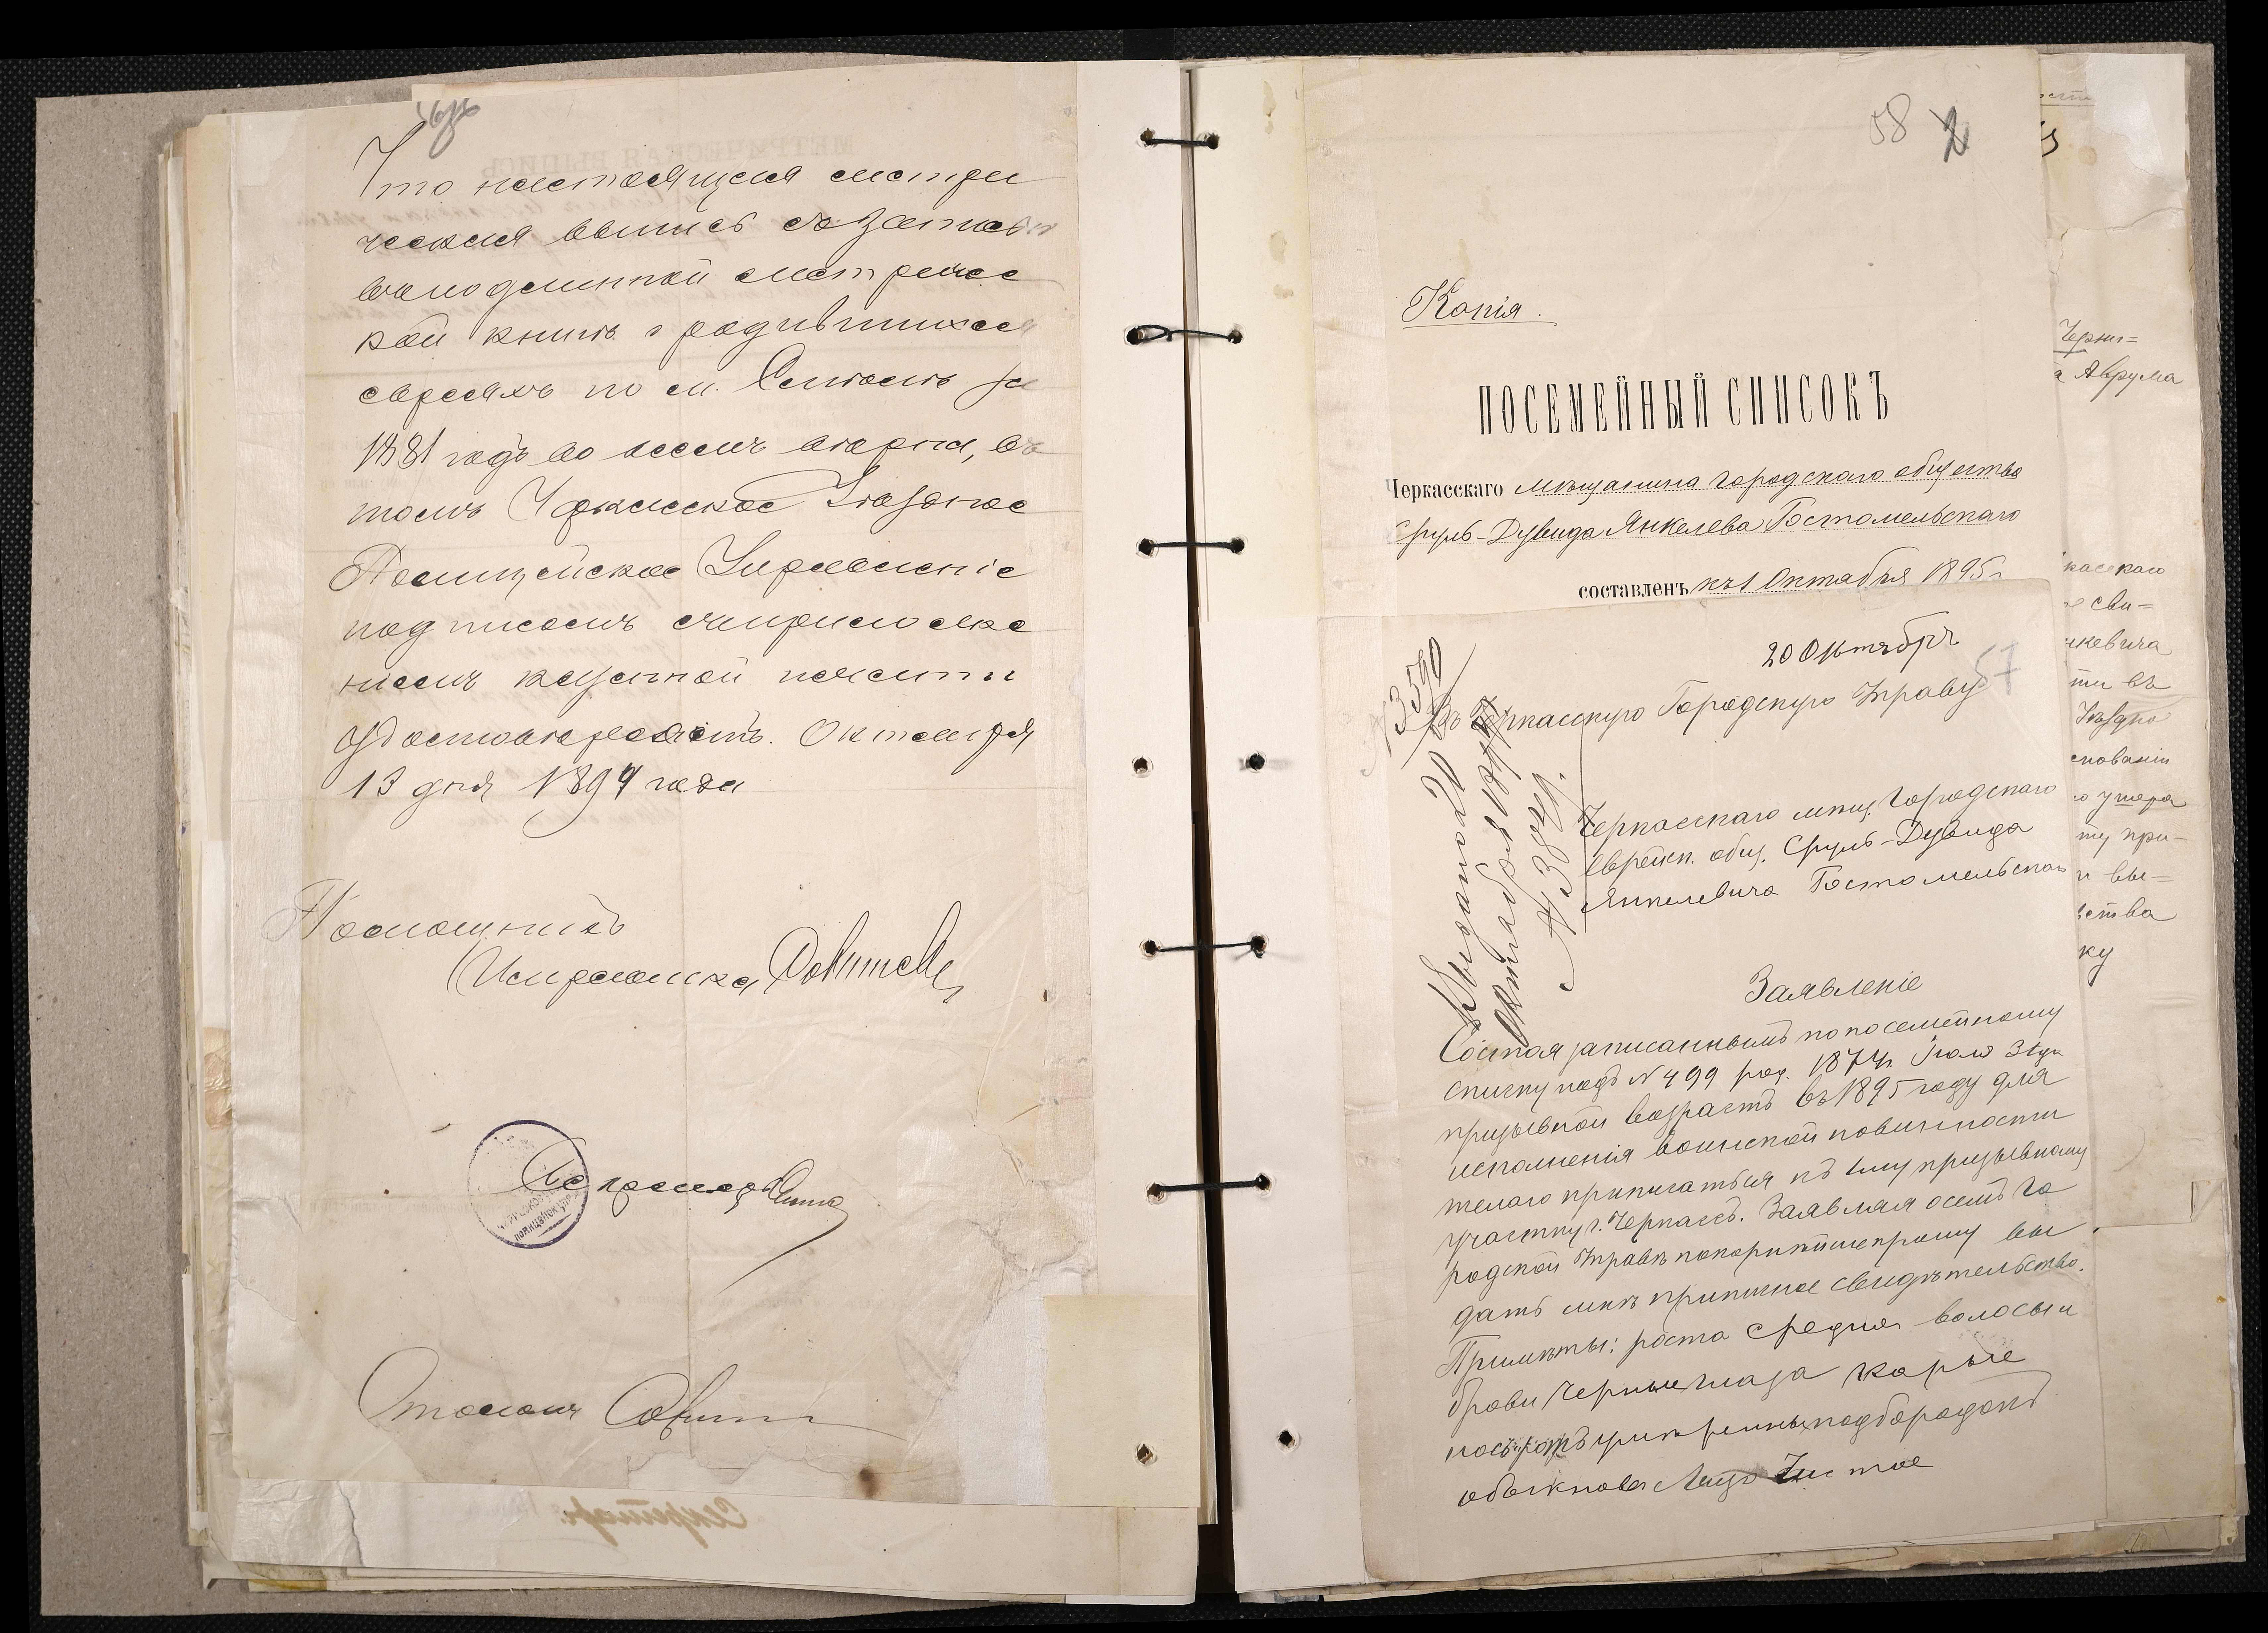 Что настоящая метри
ческая выпись съ записью
въ подлинной метричес
кой книгѣ о родившихся
евреяхъ по м. Смѣлѣ за
1881 годъ во всемъ вѣрна, въ
томъ Черкасское Уѣздное
Полицейское Управленіе
подписомъ съ приложе
ніемъ казенной печати
удостовѣряетъ. Октября
13 дня 1894 года
Помощникъ
Исправника
Секретарь
Секретарь
58
Копія.
ПОСЕМЕЙНЫЙ СПИСОКЪ
Черкасскаго мѣщанина городскаго общества
Сруль-Дувида Янкелева Гостомельскаго
составленъ къ 1 Октября 1895 г.
20 Октября
57
Въ Черкасскую Городскую Управу
Черкасскаго мѣщ. городскаго
Еврейск. общ. Сруль-Дувида
Янкелевича Гостомельскаго
Заявленіе
Состоя записаннымъ по посемейному
списку подъ № 499 род. 1874 г. Іюля 31 дня
призывной возрастъ въ 1895 году для
исполненія воинской повинности
желаю приписаться къ 1му призывному
участку г. Черкассъ. Заявляя о семъ Го
родской Управѣ покорнѣйше прошу вы
дать мнѣ приписное свидѣтельство.
Примѣты: роста средня волосы и
брови черные глаза карые
носъ и ротъ умѣренны подбородокъ
обыкновен Лицо Чистое
Выдано 20
Октября 1894 г.
Черни=
а Аврума
касскаго
сви=
нкевича
ти въ
Уѣздно
сновании
умера
ту при-
и вы=
ства
ку